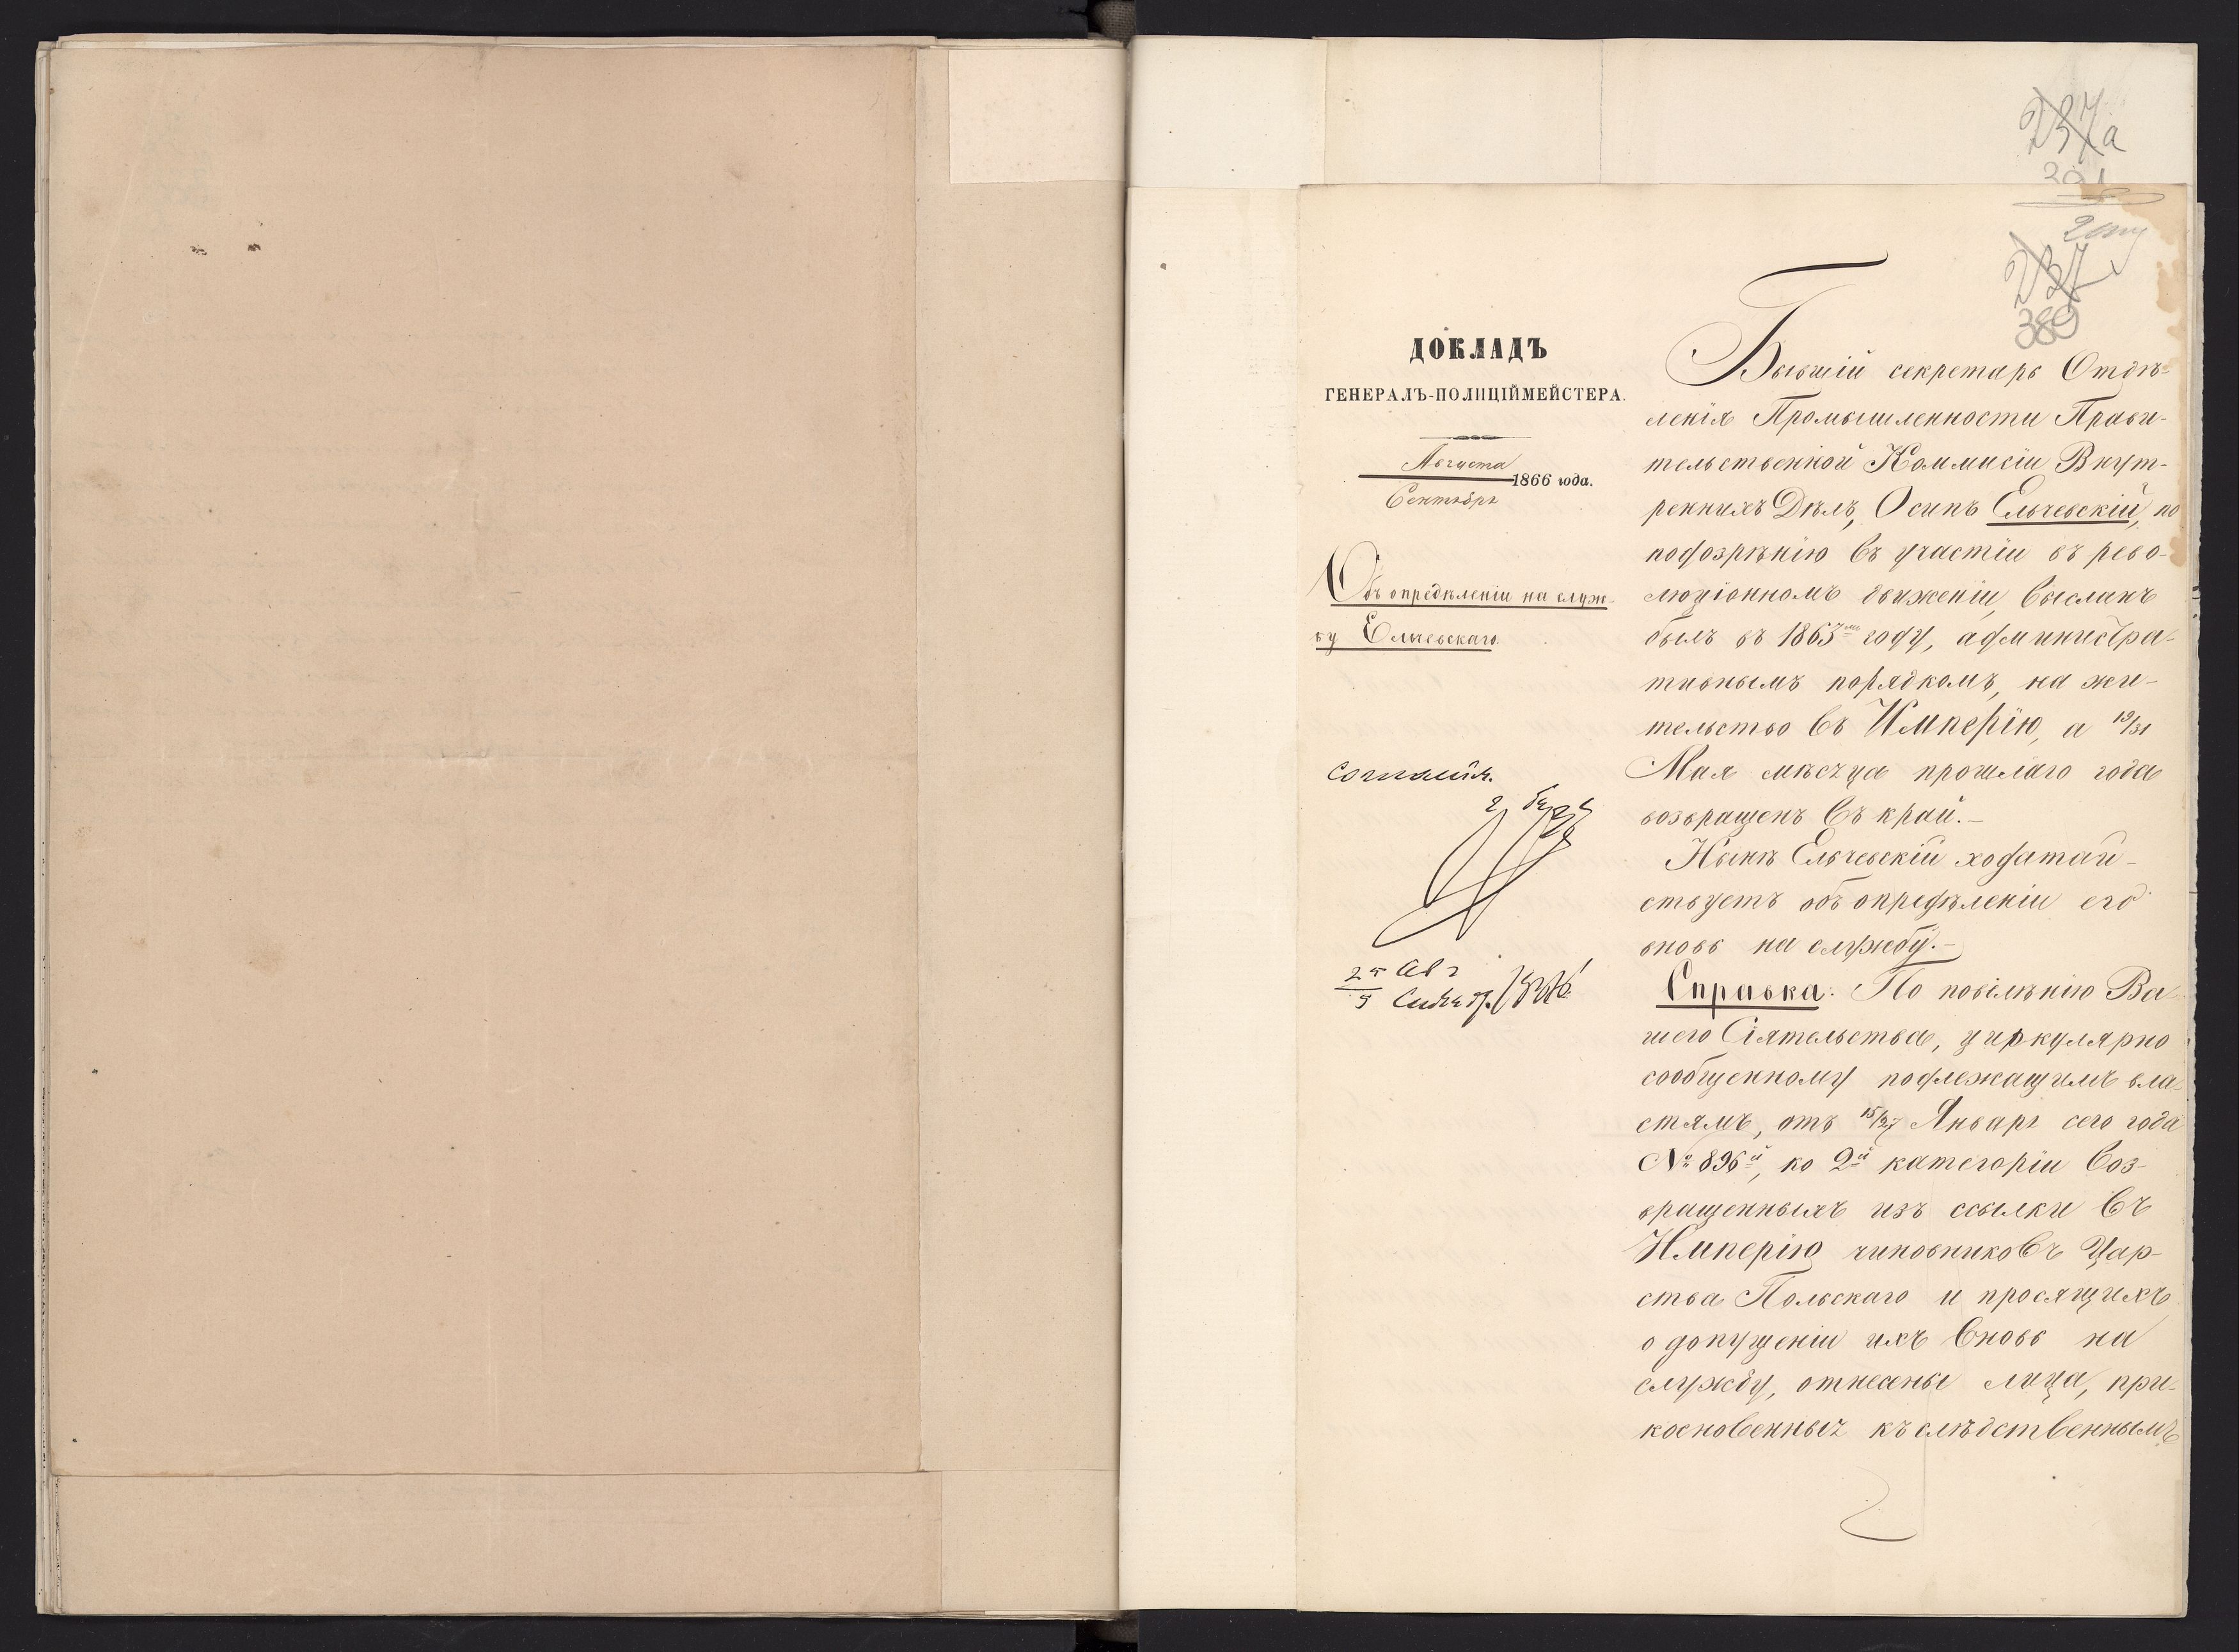 237a
201
237
389
ДОКЛАДЪ
ГЕНЕРАЛЪ-ПОЛИЦІЙМЕЙСТЕРА.
Августа
1866 года.
Сентября
Объ опредѣленіи на служ-
бу Ельчевскаго.
Согласенъ.
25 Авг
5 Сентяб. 1866
Бывшій секретарь Отдѣ-
ленія Промышленности Прави-
тельственной Коммисіи Внут-
реннихъ Дѣлъ, Осипъ Ельчевскій, по
подозрѣнію въ участіи въ рево-
люціонномъ движеніи, высланъ
былъ въ 1863мъ году, администра-
тивнымъ порядкомъ, на жи-
тельство въ Имперію, а 19/31
Мая мѣсяца прошлаго года
возвращенъ въ край.-
Нынѣ Ельчевскій ходатай-
ствуетъ объ опредѣленіи его
вновь на службу.-
Справка. По повелѣнію Ва-
шего Сіятельства, циркулярно
сообщенному подлежащимъ вла-
стямъ, отъ 15/27 Января сего года
№ 896й, ко 2й категоріи воз-
вращенныхъ изъ ссылки въ
Имперію чиновниковъ Цар-
ства Польскаго и просящихъ
о допущеніи ихъ вновь на
службу, отнесены лица, при-
косновенныя къ слѣдственнымъ